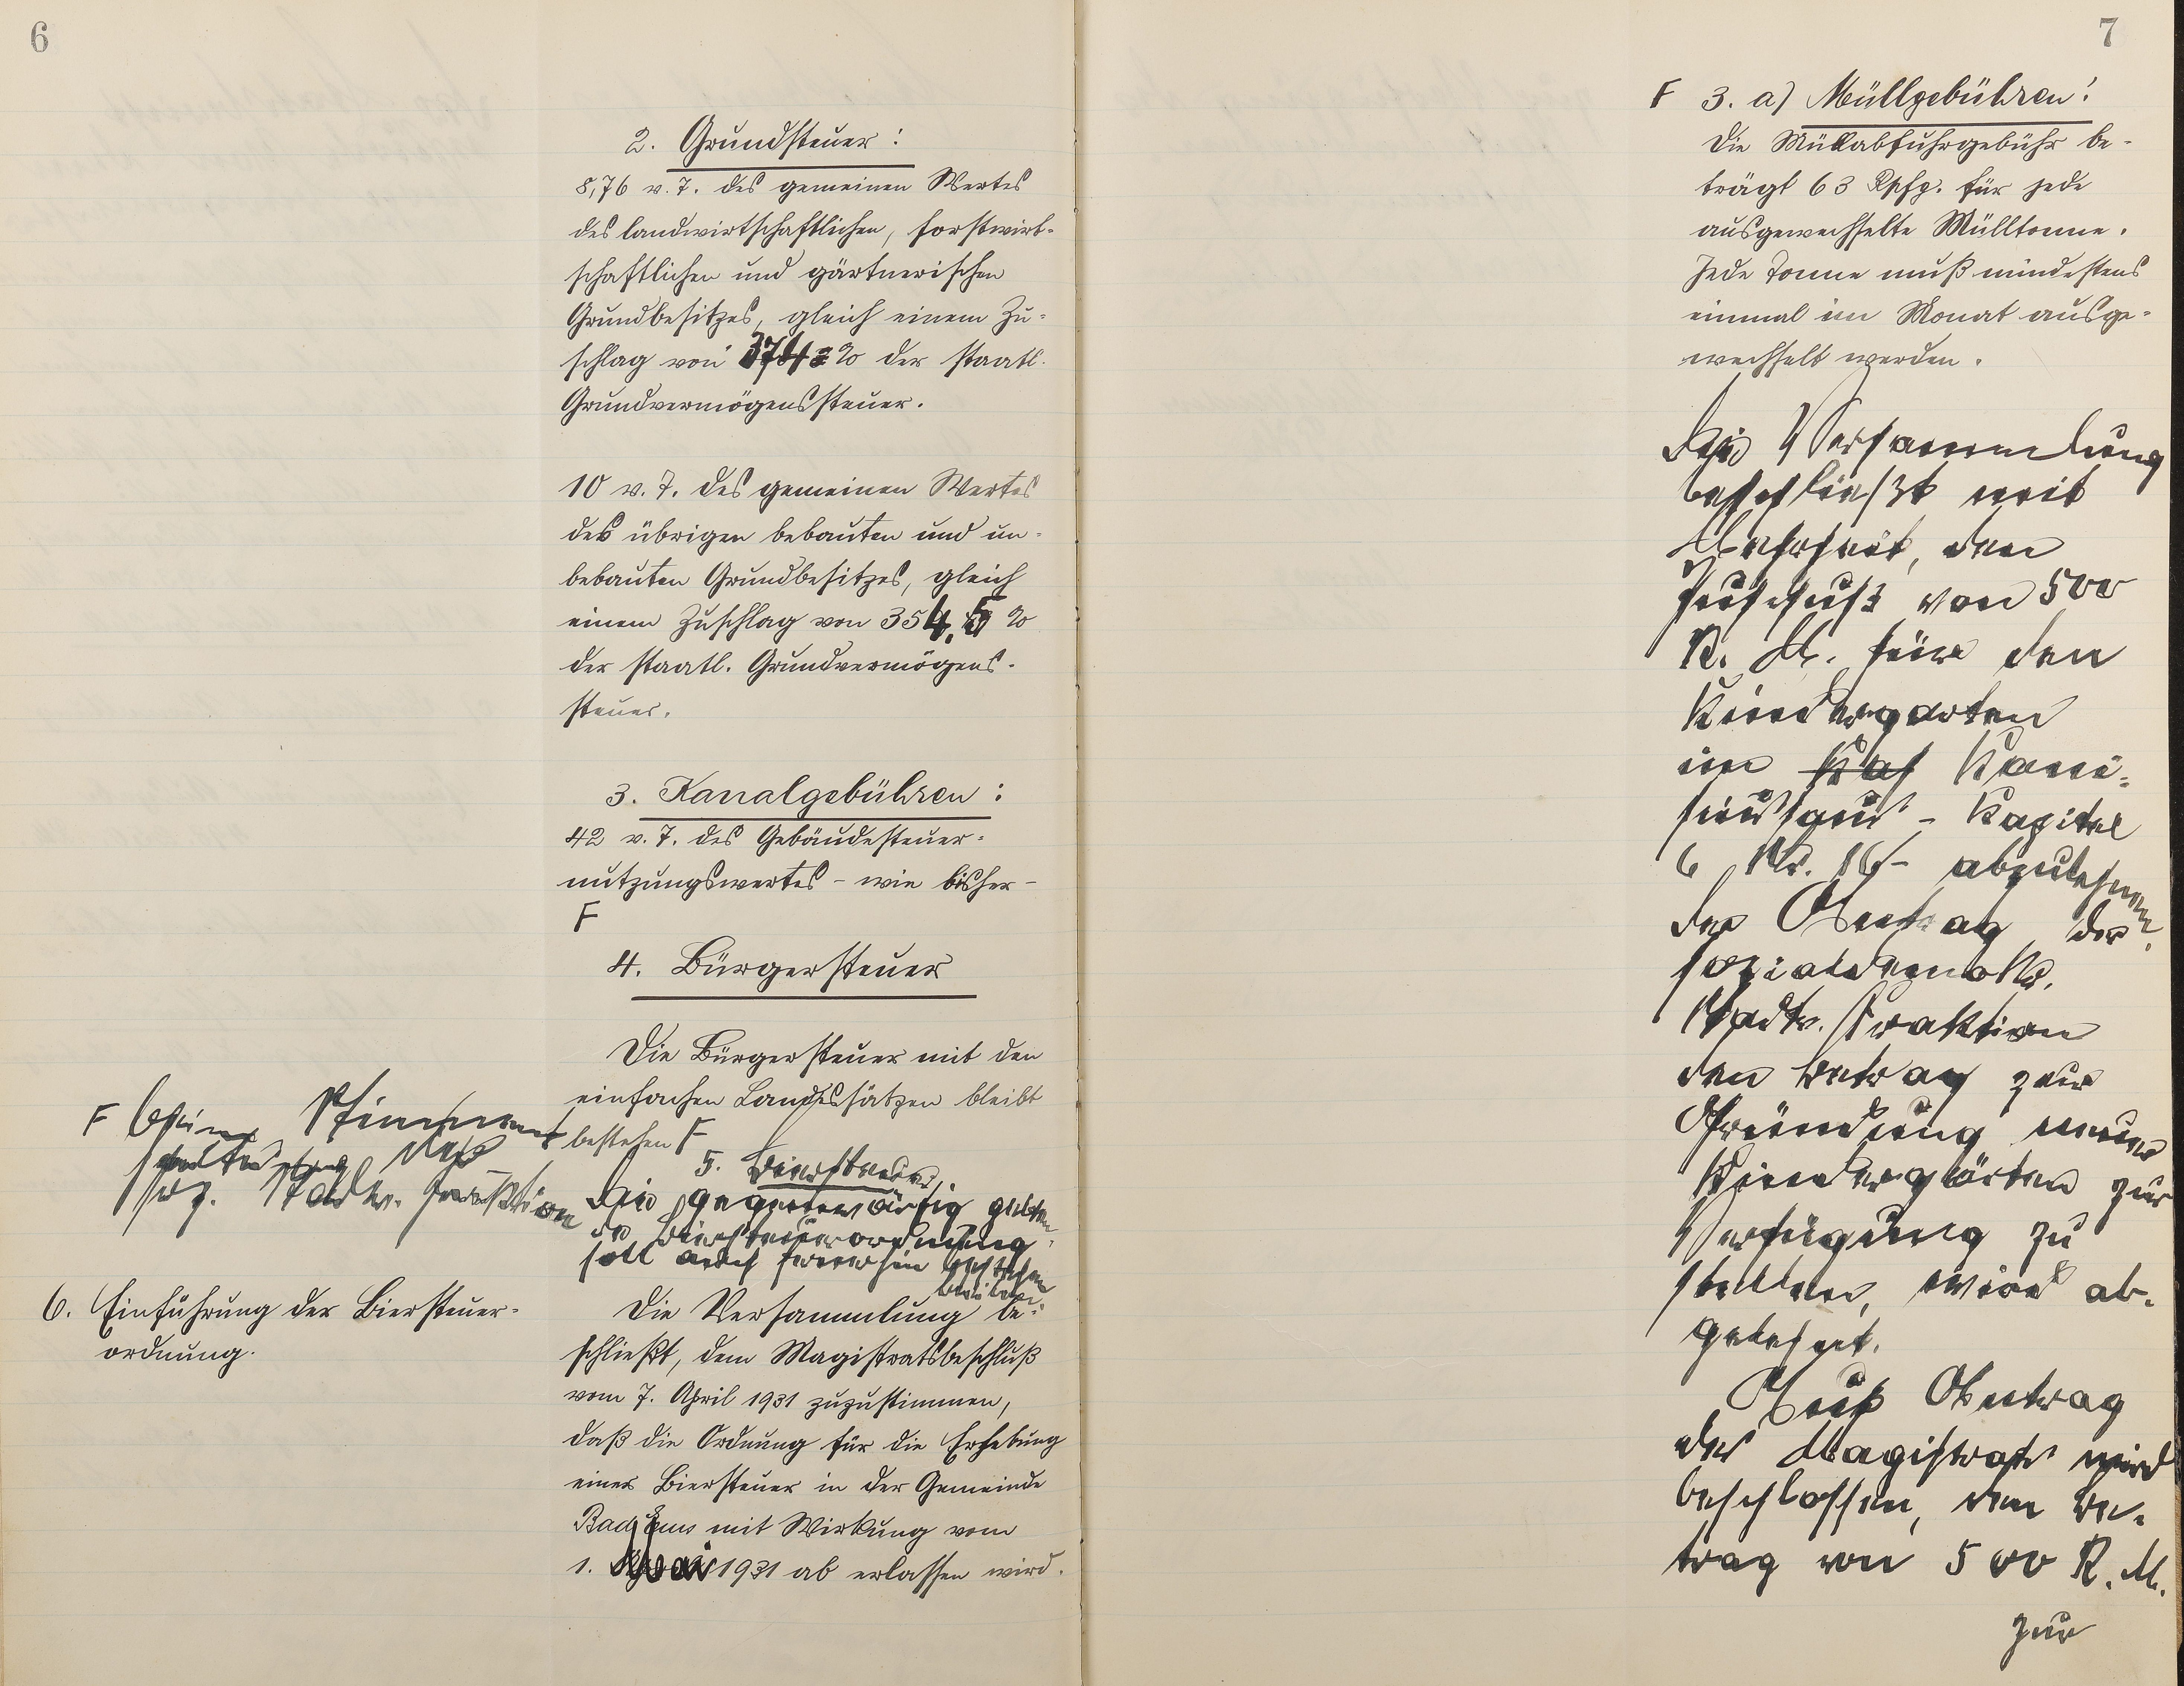 6
2. Grundsteuer:
8,76 v. T. des gemeinen Wertes
des landwirtschaftlichen, forstwirt-
schaftlichen und gärtnerischen
Grundbesitzes, gleich einem Zu-
schlag von % der staatl.
Grundvermögenssteuer.
10 v. T. des gemeinen Wertes
des übrigen bebauten und un-
bebauten Grundbesitzes, gleich
einem Zuschlag von 354,5 %
der staatl. Grundvermögens-
steuer.
3. Kanalgebühren:
42 v. T. des Gebäudesteuer-
nutzungswertes - wie bisher -
F
4. Bürgersteuer
Die Bürgersteuer mit den
einfachen Landessätzen bleibt
bestehen F
F bei Stimment
haltung der
soz. Stadtv. Fraktion
5. Biersteuer
Die gegenwärtig gelten-
de Biersteuerordnung
soll auch fernerhin bestehen
bleiben.
6. Einführung der Biersteuer-
ordnung.
Die Versammlung be-
schließt, dem Magistratsbeschluß
vom 7. April 1931 zuzustimmen,
daß die Ordnung für die Erhebung
einer Biersteuer in der Gemeinde
Bad Ems mit Wirkung vom
1. Mai 1931 ab erlassen wird.
7
F 3. a) Müllgebühren:
Die Müllabfuhrgebühr be-
trägt 63 Rpfg. für jede
ausgewechselte Mülltonne.
Jede Tonne muß mindestens
einmal im Monat ausge-
wechselt werden.
Die Versammlung
beschließt mit
Mehrheit, den
Zuschuß von 500
R. M. für den
Kindergarten
im Kas Kani-
siushaus - Kapitel
6 Nr. 16 - abzulehnen.
Der Antrag der
sozialdemokr.
Stadtv. Fraktion
den Betrag zur
Gründung neuer
Kindergärten zur
Verfügung zu
stellen, wird ab-
gelehnt.
Auf Antrag
des Magistrats wird
beschlossen, den Be-
trag von 500 R. M.
zur